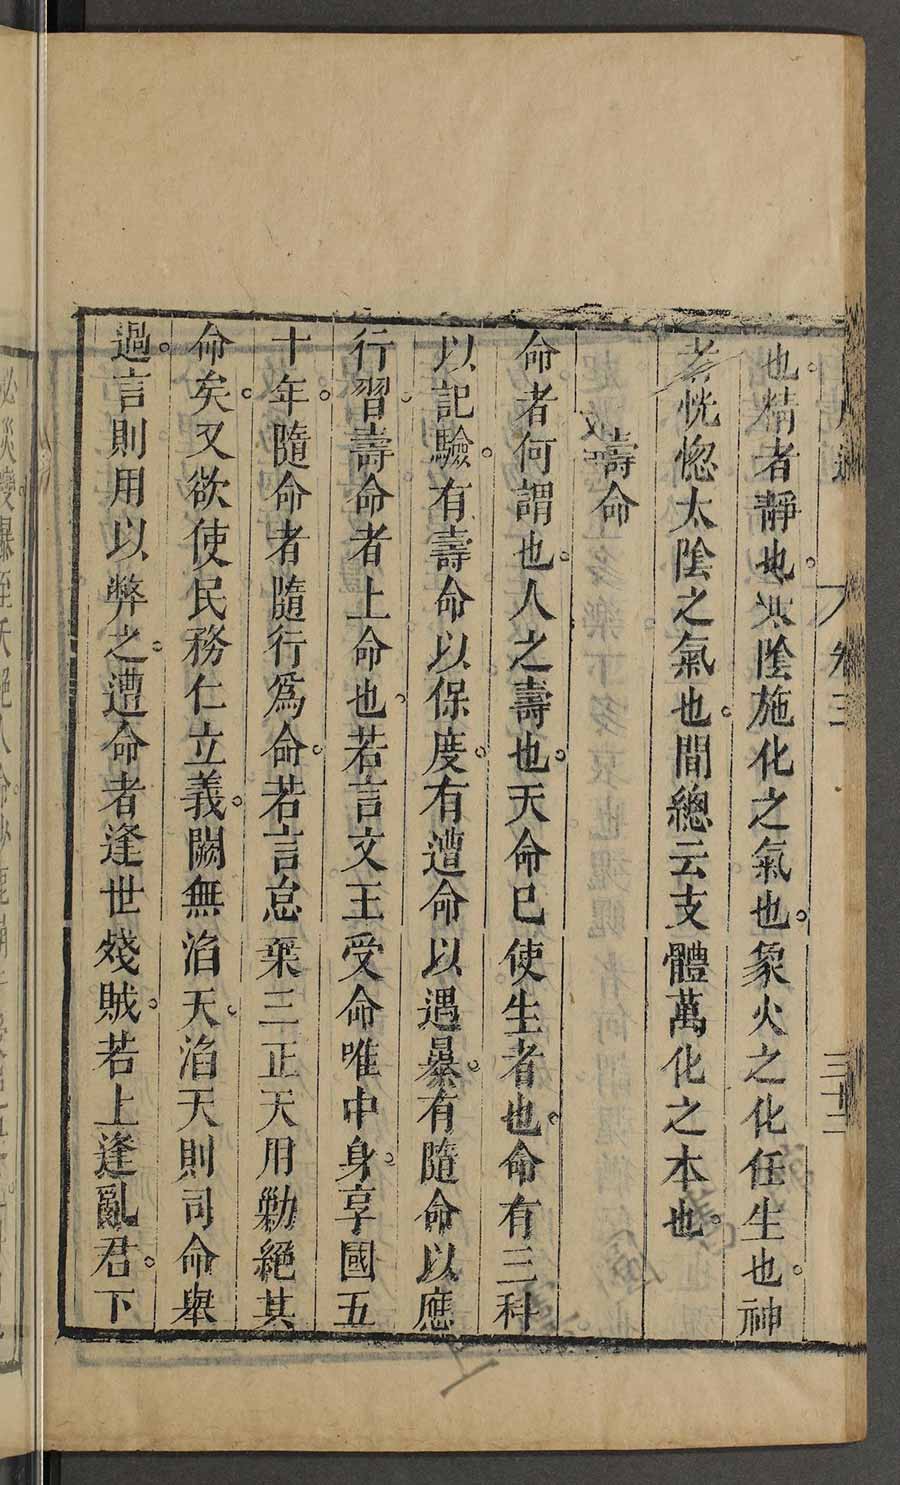 白虎通 卷三 三十二
也精者靜也太陰施化之氣也象火之化任生也神
者恍惚太陰之氣也間總云支體萬化之本也
壽命
命者何謂也人之壽也天命已使生者也命有三科
以記驗有壽命以保度有遭命以遇暴有隨命以應
行習壽命者上命也若言文王受命唯中身享國五
十年隨命者隨行爲命若言怠棄三正天用勦絕其
命矣又欲使民務仁立義闕無滔天滔天則司命舉
過言則用以弊之遭命者逢世殘賊若上逢亂君下